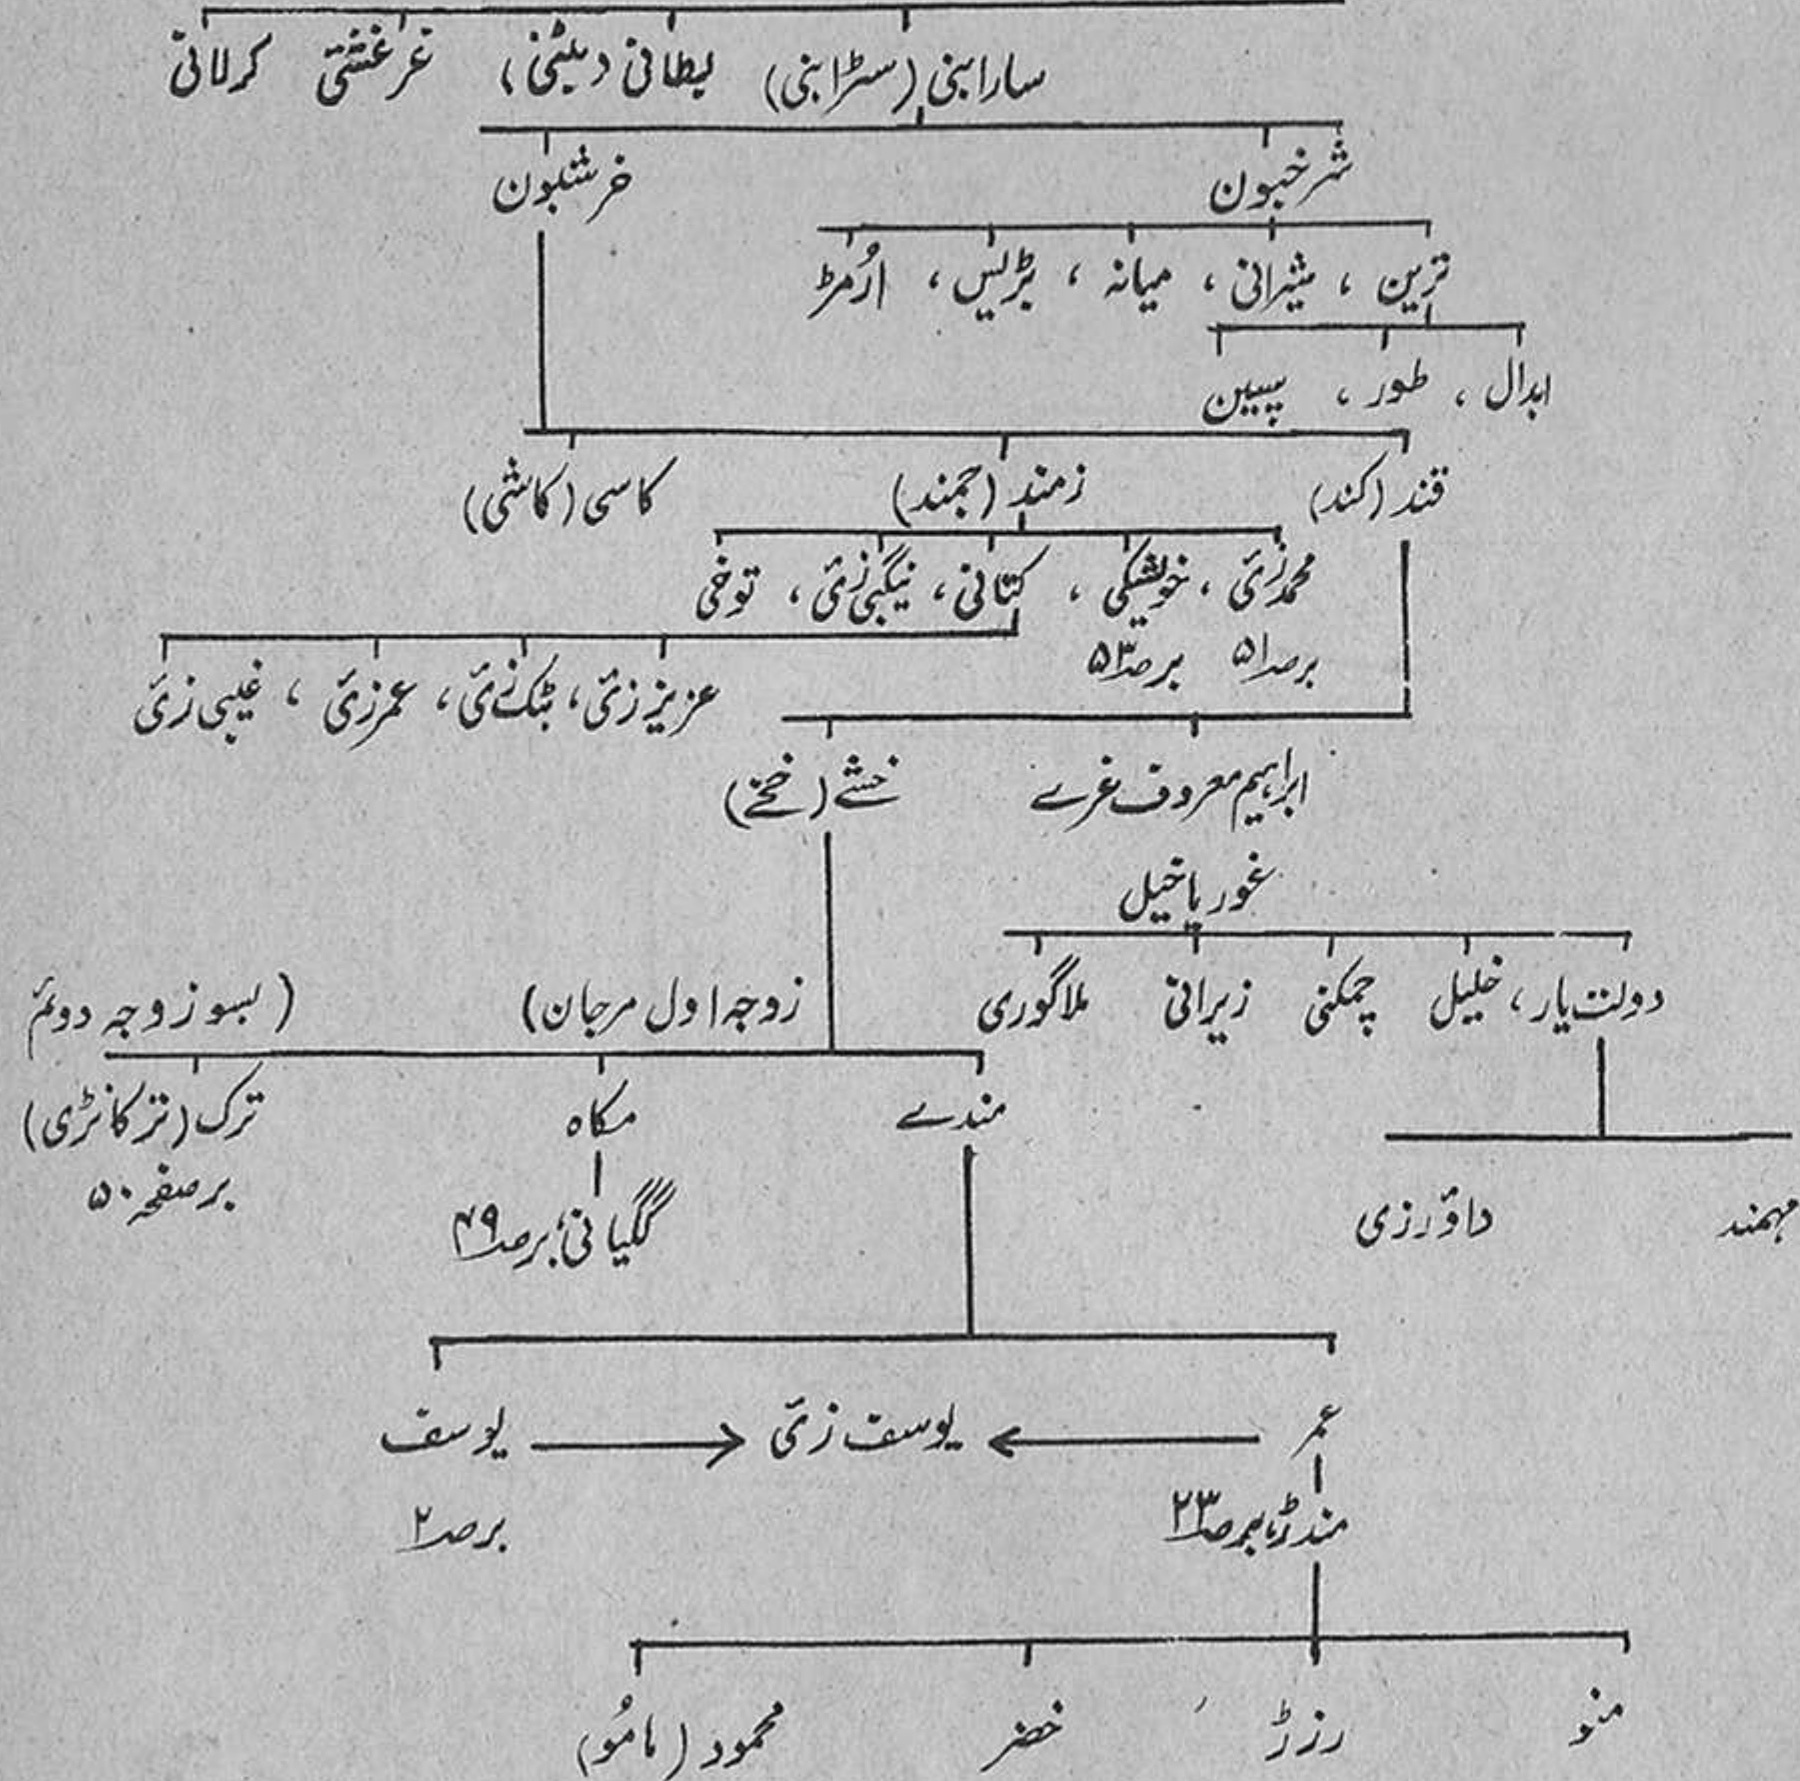 سارابنی (سڑابنی) بطانی (بیٹنی) غرغشتی کرلانی
شرخبون خرشبون
ترین ، شیرانی ، میانہ ، بڑیس ، ارُمڑ
ابدال ، طور ، سپین
قند (کند) زمند (جمند) کاسی (کاشی)
محمدزئ ، خویشگی ، کتانی ، نیکبی زئ ، توخی
برصہ ۵۱ برصہ ۵۳
عزیز زئ ، بٹک زئ ، عمرزئ ، غیبی زئ
ابراہیم معروف غرے خشے (خخے)
غوریا خیل
دولت یار ، خلیل چمکنی زیرانی ملاگوری
زوجہ اول مرجان) (بسو زوجہ دوئم
مندے مکاہ ترک (ترکانڑی)
برصفحہ ۵۰
مہمند داؤرزی گگیانی، برصہ ۴۹
عمر یوسف زئ یوسف
مندڑ، برصہ ۲۳ برصہ ۲
منو رزڑ خضر محمود (مامُو)